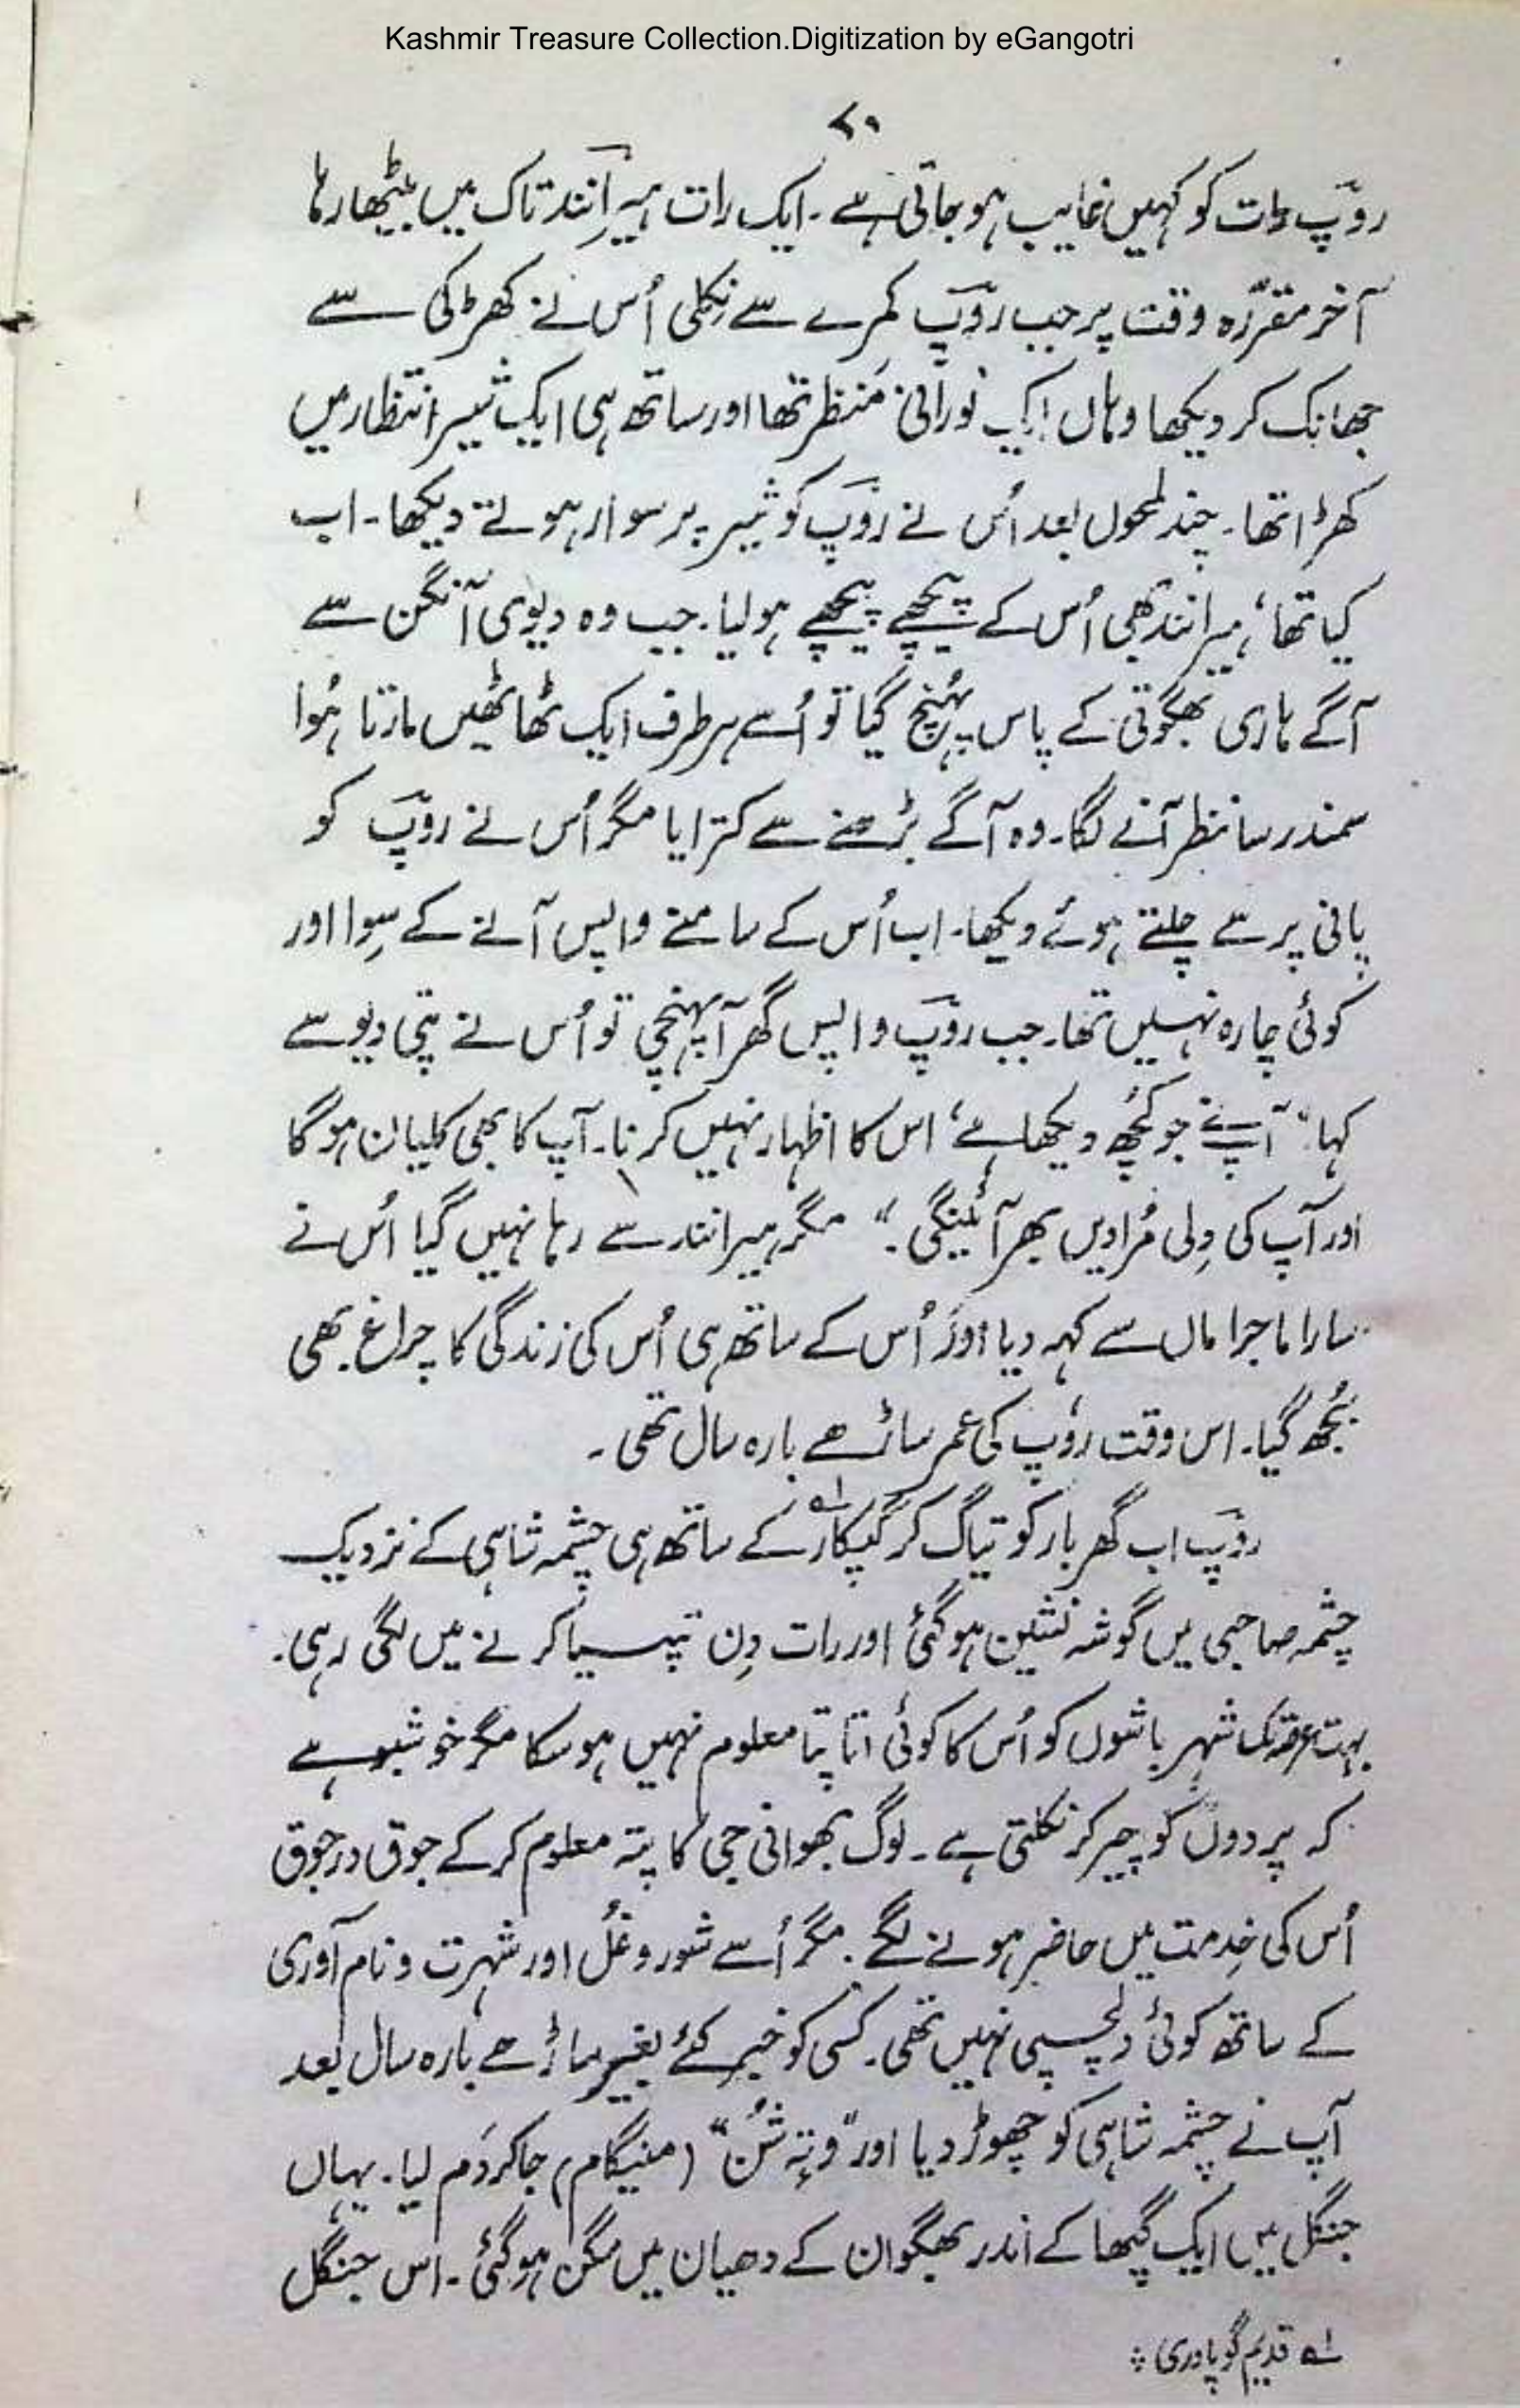 Kashmir Treasure Collection.Digitization by eGangotri
روٗپ رات کو کہیں غایب ہو جاتی ہے ۔ ایک رات ہیرآنند تاک میں بیٹھا رہا
آخر مقرّرہ وقت پر جب روٗپ کمرے سے نِکلی اُس نے کھڑکی سے
جھانک کر دیکھا وہاں ایک نورانی مَنظر تھا اور ساتھ ہی ایک شیر انتظار میں
کھڑا تھا ۔ چند لمحوں بعد اُس نے روٗپ کو شیر پر سوار ہوتے دیکھا ۔ اب
کیا تھا، ہیرانند بھی اُس کے پیچھے پیچھے ہولیا ۔ جب وہ دیوی آنگن سے
آگے ہاری بھگوتی کے پاس پہُنچ گیا تو اُسے ہر طرف ایک ٹھاٹھیں مارتا ہُوا
سمندر سا نظر آنے لگا ۔ وہ آگے بڑھنے سے کترایا مگر اُس نے روٗپ کو
پانی پر سے چلتے ہوئے دیکھا ۔ اب اُس کے سامنے واپس آنے کے سِوا اور
کوئی چارہ نہیں تھا ۔ جب روٗپ واپس گھر آپہنچی تو اُس نے پتی دیو سے
کہا ”آپنے جو کُچھ دیکھا ہے، اس کا اظہار نہیں کرنا ۔ آپ کا بھی کلیان ہوگا
اور آپ کی دِلی مُرادیں بھر آئینگی ۔“ مگر ہیرانند سے رہا نہیں گیا اُس نے
سارا ماجرا ماں سے کہہ دیا اور اُس کے ساتھ ہی اُس کی زندگی کا چراغ بھی
بُجھ گیا ۔ اس وقت روٗپ کی عمر ساڑھے بارہ سال تھی ۔
روٗپ اب گھر بار کو تیاگ کر گپکار۱ے کے ساتھ ہی چشمہ شاہی کے نزدیک
چشمہ صاحبی میں گوشہ نشین ہوگئی اور رات دِن تپسیا کرنے میں لگی رہی ۔
بہت عرصہ تک شہر باشوں کو اُس کا کوئی اتا پتا معلوم نہیں ہوسکا مگر خوشبو ہے
کہ پردوں کو چیر کر نکلتی ہے ۔ لوگ بھوانی جی کا پتہ معلوم کر کے جوق درجوق
اُس کی خِدمت میں حاضر ہونے لگے ۔ مگر اُسے شور و غُل اور شہرت و نام آوری
کے ساتھ کوئی دلچسپی نہیں تھی ۔ کسی کو خبر کئے بغیر ساڑھے بارہ سال بعد
آپ نے چشمہ شاہی کو چھوڑ دیا اور ”وتہٕ شُن“ (منیگام) جاکر دَم لیا ۔ یہاں
جنگل میں ایک گپھا کے اندر بھگوان کے دھیان میں مگن ہوگئی ۔ اس جنگل
۱ے قدیم گوپادری ؞